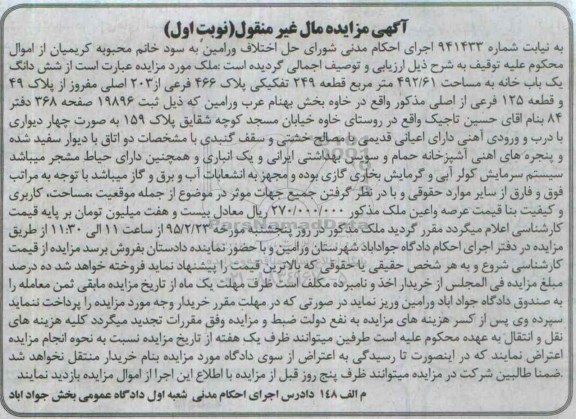 آگهی مزایده مال غیر منقول(نوبت اول)
به نیابت شماره ۹۴۱۴۳۳ اجرای احکام مدنی شورای حل اختلاف ورامین به سود خانم محبوبه کریمیان از اموال
محکوم علیه توقیف به شرح ذیل ارزیابی و توصیف اجمالی گردیده است :ملک مورد مزایده عبارت است از شش دانگ
یک باب خانه به مساحت ۴۹۲/۶۱ متر مربع قطعه ۲۴۹ تفکیکی پلاک ۴۶۶ فرعی از۲۰۳ اصلی مفروز از پلاک ۴۹
و قطعه ۱۲۵ فرعی از اصلی مذکور واقع در خاوه بخش بهنام عرب ورامین که ذیل ثبت ۱۹۸۹۶ صفحه ۳۶۸ دفتر
۸۴ بنام اقای حسین تاجیک واقع در روستای خاوه خیابان مسجد کوچه شقایق پلاک ۱۵۹ به صورت چهار دیواری
با درب و ورودی آهنی دارای اعیانی قدیمی با مصالح خشتی و سقف گنبدی با مشخصات دو اتاق با دیوار سفید شده
و پنجره های اهنی آشپزخانه حمام و سرویس بهداشتی ایرانی و یک انباری و همچنین دارای حیاط مشجر میباشد
سیستم سرمایش کولر آبی و گرمایش بخاری گازی بوده و مجهز به انشعابات آب و برق و گاز میباشد با توجه به مراتب
فوق و فارق از سایر موارد حقوقی و با در نظر گرفتن جمیع جهات موثر در موضوع از جمله موقعیت ،مساحت، کاربری
و کیفیت بنا قیمت عرصه واعین ملک مذکور ۲۷۰/۰۰۰/۰۰۰ ریال معادل بیست و هفت میلیون تومان بر پایه قیمت
کارشناسی اعلام میگردد مقرر گردید ملک مذکور در روز پنجشنبه مورخه ۹۵/۲/۲۳ از ساعت ۱۱ الی ۱۱:۳۰ از طریق
مزایده در دفتر اجرای احکام دادگاه جوادآباد شهرستان ورامین و با حضور نماینده دادستان بفروش برسد مزایده از قیمت
کارشناسی شروع و به هر شخص حقیقی یا حقوقی که بالاترین قیمت را پیشنهاد نماید فروخته خواهد شد ده درصد
مبلغ مزایده فی المجلس از خریدار اخذ و نامبرده مکلف است ظرف مهلت یک ماه از تاریخ مزایده مابقی ثمن معامله را
به صندوق دادگاه جواد آباد ورامین وریز نماید در صورتی که در مهلت مقرر خریدار وجه مورد مزایده را پرداخت ننماید
سپرده وی پس از کسر هزینه های مزایده به نفع دولت ضبط و مزایده وفق مقررات تجدید میگردد کلیه هزینه های
نقل و انتقال به عهده محکوم علیه است طرفین میتوانند ظرف یک هفته از تاریخ مزایده نسبت به نحوه انجام مزایده
اعتراض نمایند که در اینصورت تا رسیدگی به اعتراض از سوی دادگاه مورد مزایده بنام خریدار منتقل نخواهد شد
.ضمنا طالبین شرکت در مزایده میتوانند ظرف پنج روز قبل از مزایده با اطلاع این اجرا از اموال مزایده بازدید نمایند
م الف ۱۴۸ دادرس اجرای احکام مدنی شعبه اول دادگاه عمومی بخش جواد آباد